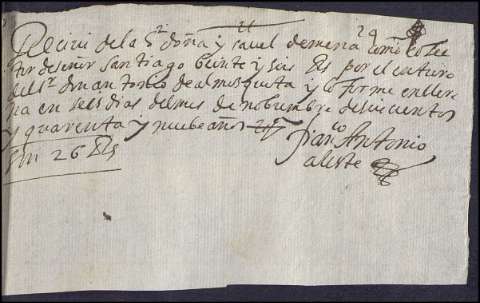 Recivi de la S.ra doña ysavel de mena como colec
tor de señor santiago beinte y seis Rs por el entiero
del s.r d juan antonio de almosquita y lo firme en llere
na en seis dias del mes de nobiembre de seiscientos
y quarenta y nuebe años
Son 26 Rs
Fran.co Antonio
aleste